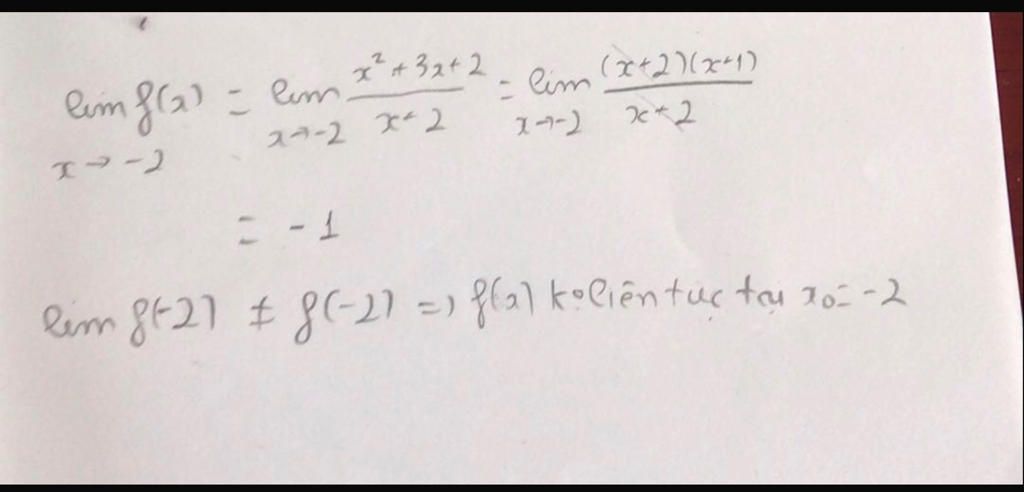 lim f(x) = lim x²+3x+2 / x+2 = lim (x+2)(x+1) / x+2
x→-2 x→-2 x→-2
= -1
lim f(-2) ≠ f(-2) => f(x) ko liên tục tại x₀=-2